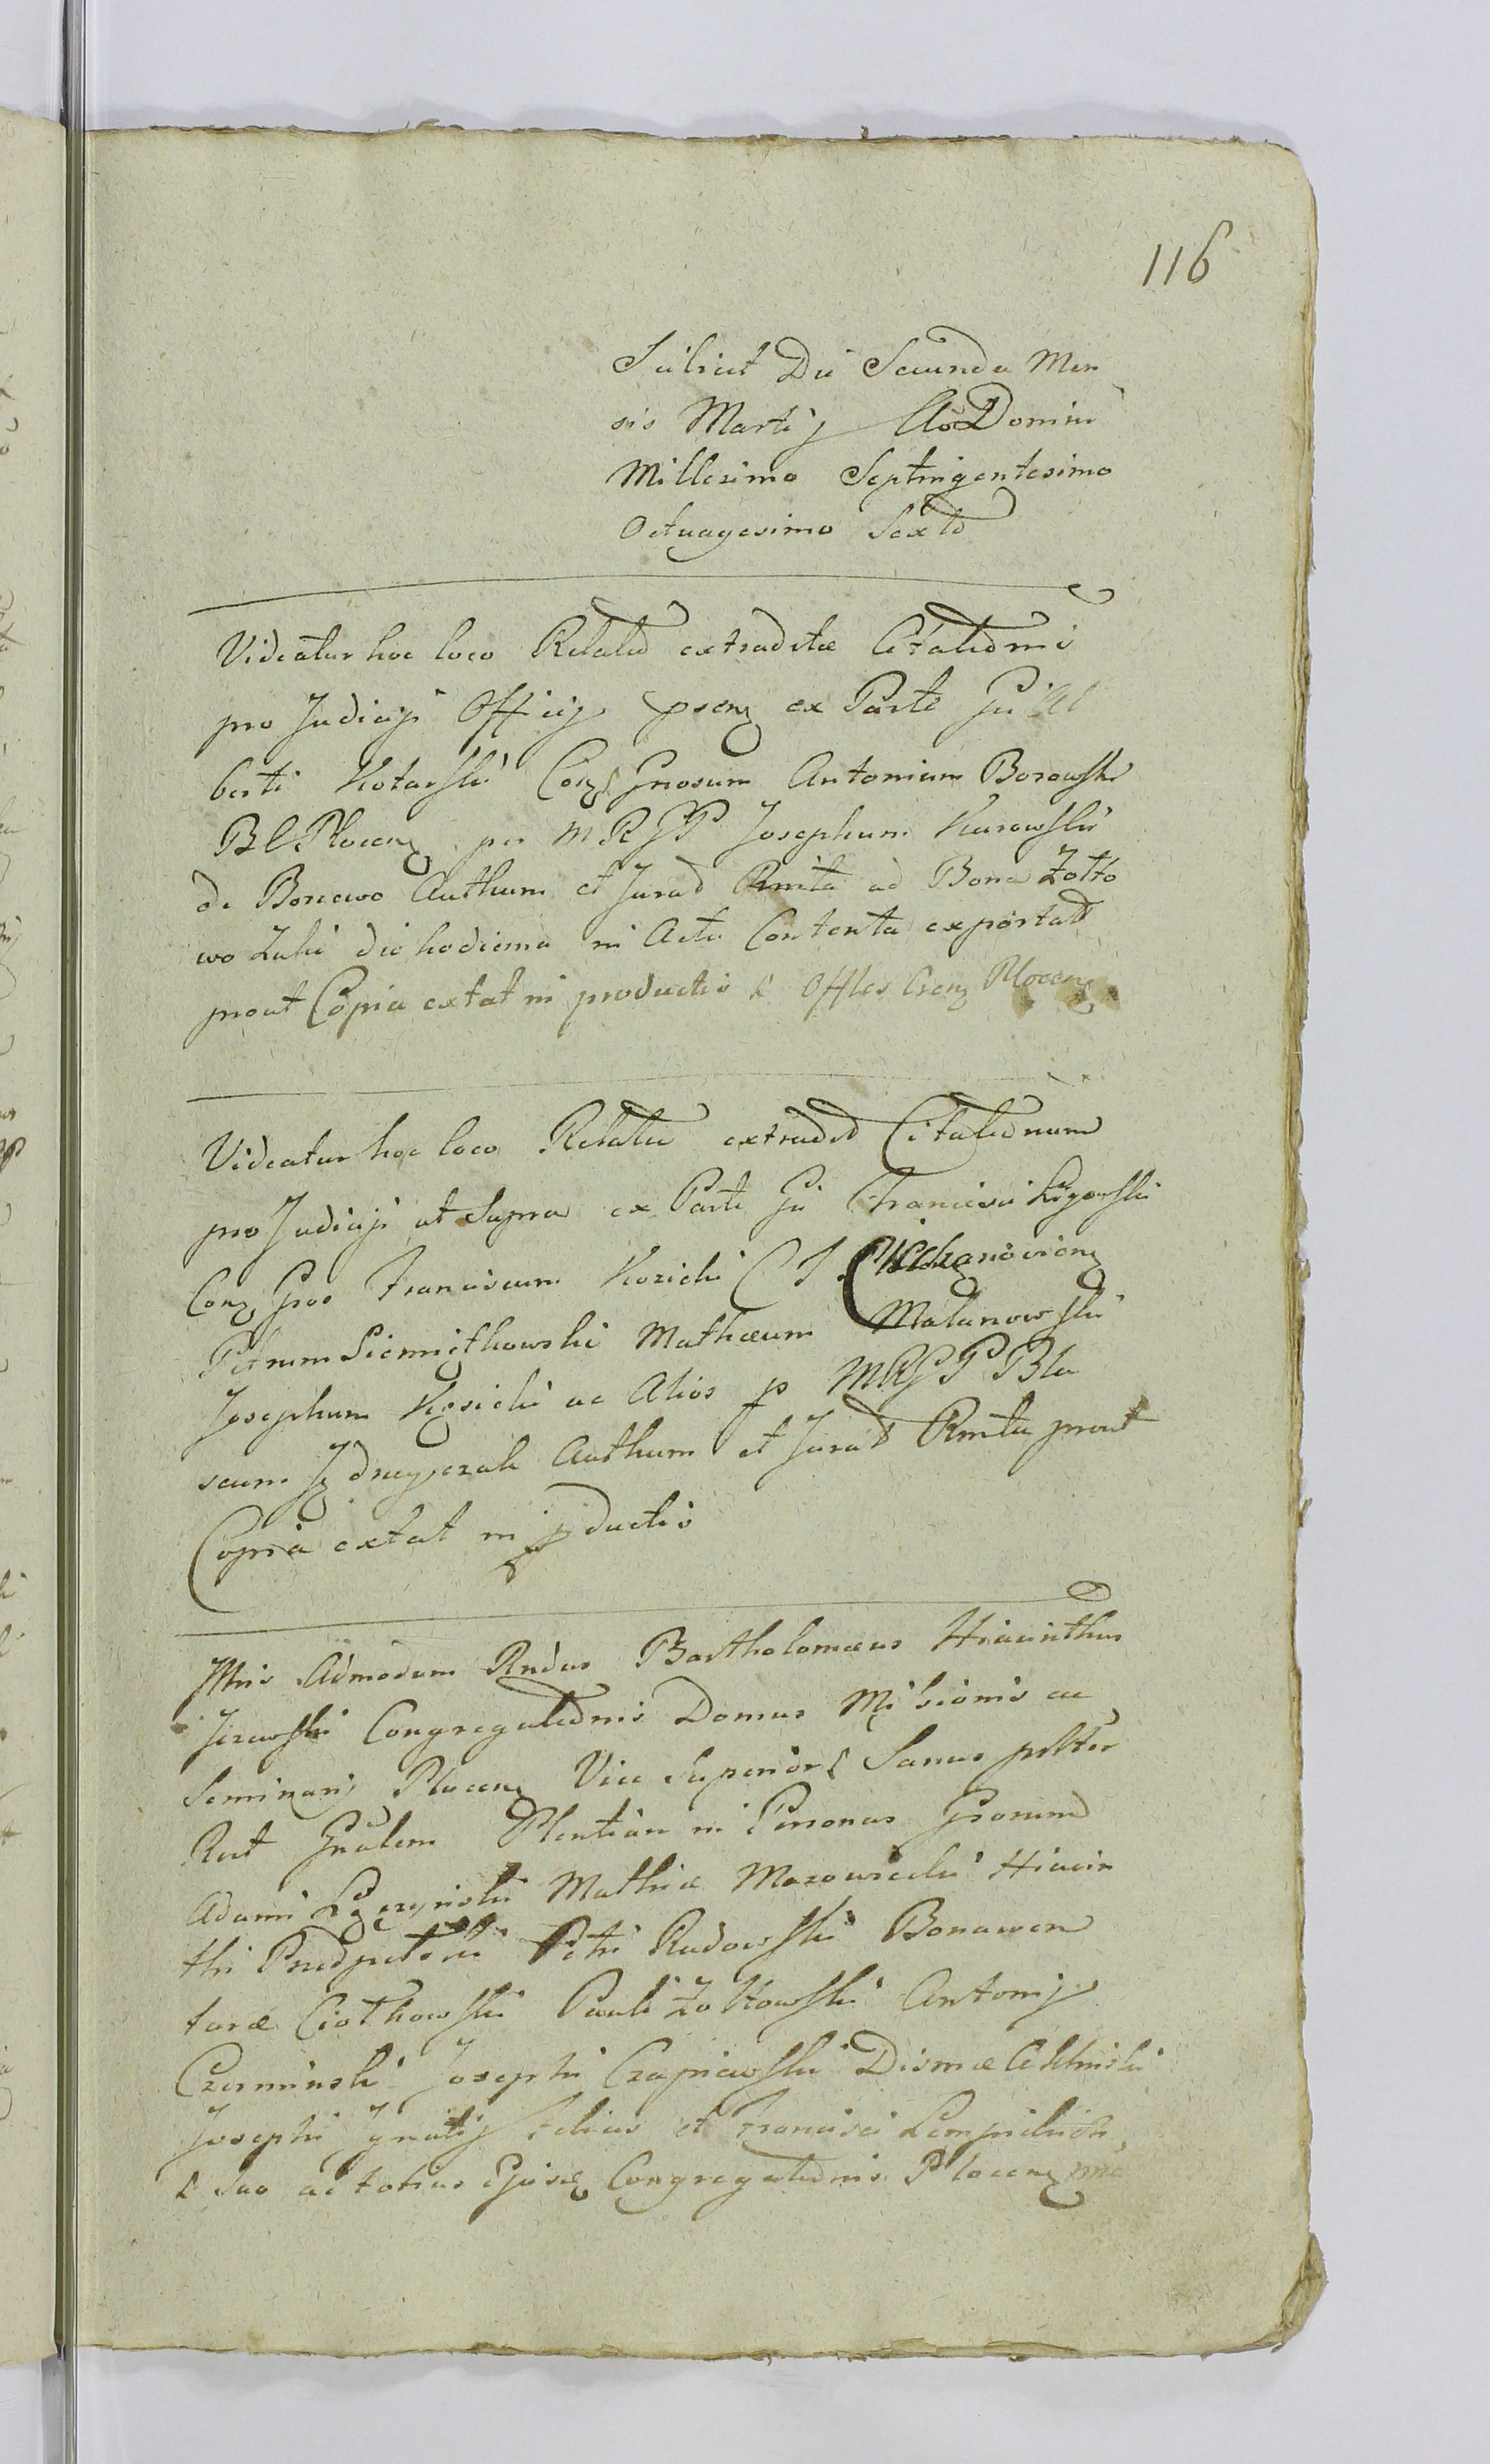 116
Scilicet Die Secunda Men
sis Martij Ao Domini
Millesimo Septingentesimo
Octuagesimo Sexto
Videatur hoc loco Relatio extraditae Citationis
pro Judicijs Officij psenᶎ ex Parte Gi Al
berti Kotarski Conᶎ Gnosum Antonium Borowski
B C Plocenᶎ per M R G P Josephum Kurowski
de Boncewo Authum et Jurad Rmita ad Bona Zotto
wo Luki die hodierna in Actu Contenta exportat
prout Copia extat in productis & Offles Csenᶎ Plocenᶎ
Videatur hoc loco Relatio extradit Citationum
pro Judicijs ut Supra ex Parte Gi Francisci Ligowski
Conᶎ Gnos Franciscum Kozicki C T Ciechanovienᶎ
Petrum Siemiątkowski Mathaeum Malanowski
Josephum Kosicki ac Alios p M R G P Bla
scum Jędrzejczak Authum et Jurad Rmita prout
Copia extat in pductis
Illtris Admodum Rndus Bartholomaeus Hiacinthus
Jezewski Congregationis Domus Misionis ac
Seminarij Plocenᶎ Vice Superior Sanus psltter
Rect Gnalem Plentiam in Personas Gnorum
Adami Łączynski Mathiae Mazowiecki Hiacin
thi Przedpelski Petri Radowski Bonawen
turae Ciotkowski Pauli Zoltowski Antonij
Czerminski Josephi Czapiewski Dismae Chelmicki
Josephi Ignatij Felicis et Francisci Lempickich
& suo ac totius Ejusdᶎ Congregationis Plocenᶎ nne